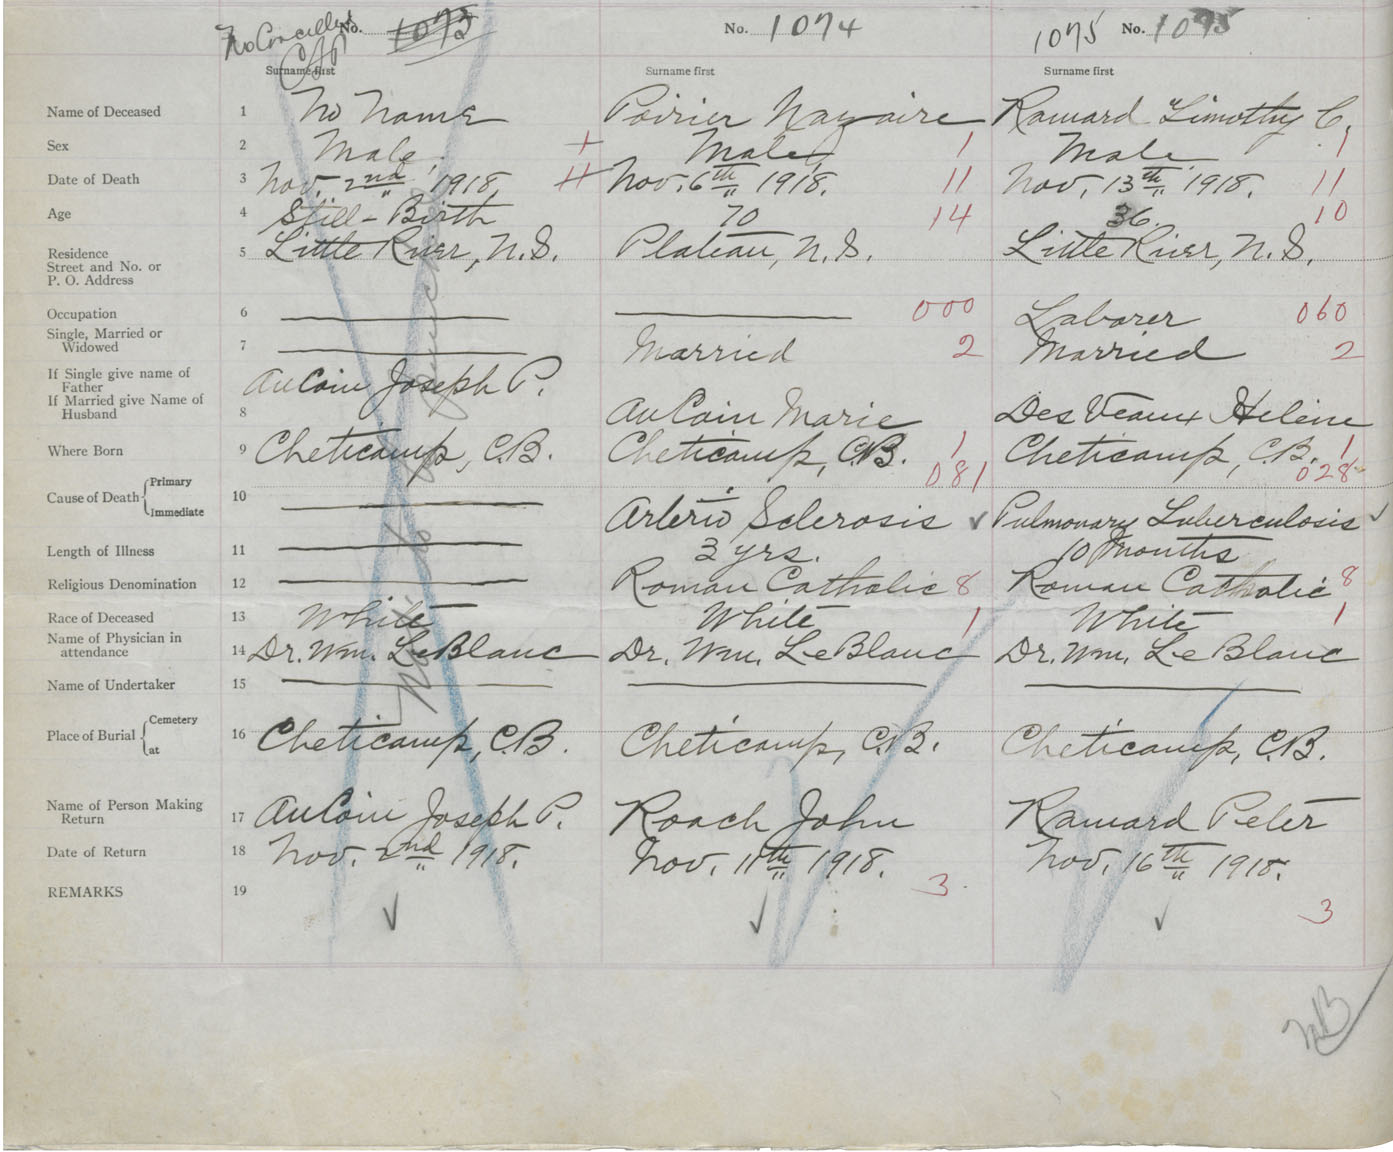 No Cancelled No. 1073 No. 1074 1075 No. 1075
Surname first Surname first Surname first
Name of Deceased 1 No Name Poirier Nazaire Raward Timothy C.
Sex 2 Male Male 1 Male 1
Date of Death 3 Nov. 2nd 1918. 11 Nov. 6th 1918. 11 Nov. 13th 1918. 11
Age 4 Still-Birth 70 14 36. 10
Residence
Street and No. or
P. O. Address
5 Little River, N.S. Plateau, N.S. Little River, N.S.
Occupation 6 000 Laborer 060
Single, Married or
Widowed
7 Married 2 Married 2
If Single give name of
Father
If Married give Name of
Husband
8 AuCoin Joseph P. AuCoin Marie DesVeaux Helene
Where Born 9 Cheticamp, C.B. Cheticamp, C.B. 1 Cheticamp, C.B. 1
081 028
Cause of Death Primary
Immediate
10 Arterio Sclerosis Pulmonary Tuberculosis
Length of Illness 11 3 yrs. 10 months
Religious Denomination 12 Roman Catholic 8 Roman Catholic 8
Race of Deceased 13 White White 1 White 1
Name of Physician in
attendance
14 Dr. Wm. LeBlanc Dr. Wm. LeBlanc Dr. Wm. LeBlanc
Name of Undertaker 15
Place of Burial Cemetery
at
16 Cheticamp, C.B. Cheticamp, C.B. Cheticamp, C.B.
Name of Person Making
Return
17 AuCoin Joseph P. Roach John Raward Peter
Date of Return 18 Nov. 2nd 1918. Nov. 11th 1918. Nov. 16th 1918.
REMARKS 19 3. 3